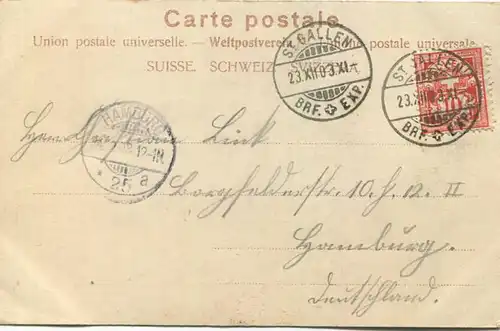 Carte postale.
Union postale universelle. — Weltpostverein — postale universale
SUISSE. SCHWEIZ. SVIZZERA.
ST. GALLEN
23.XII.03.XI-
BRF. EXP.
ST. GALLEN
23.XII.03.XI-
BRF. EXP.
HAMBURG
12-1N.
* 25 a
Herrn Hermann Link
Borgfelderstr. 10. H. 12. II
Hamburg.
Deutschland.